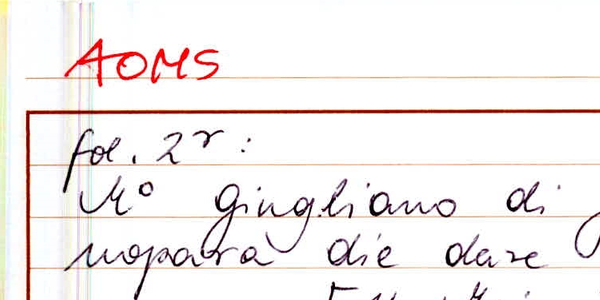 AOMS
fol. 2r:
Mo Giugliano di
nopara die dare